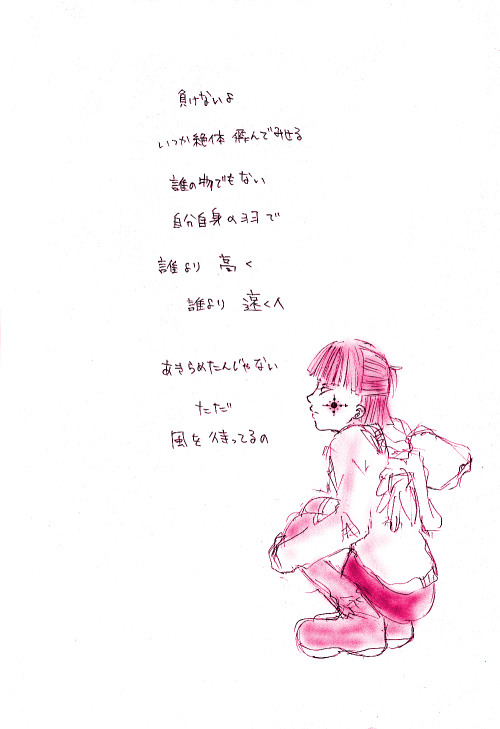 負けないよ
いつか絶体 飛んでみせる
誰の物でもない
自分自身の羽で
誰より 高く
誰より 遠く人
あきらめたんじゃない
ただ
風を 待ってるの